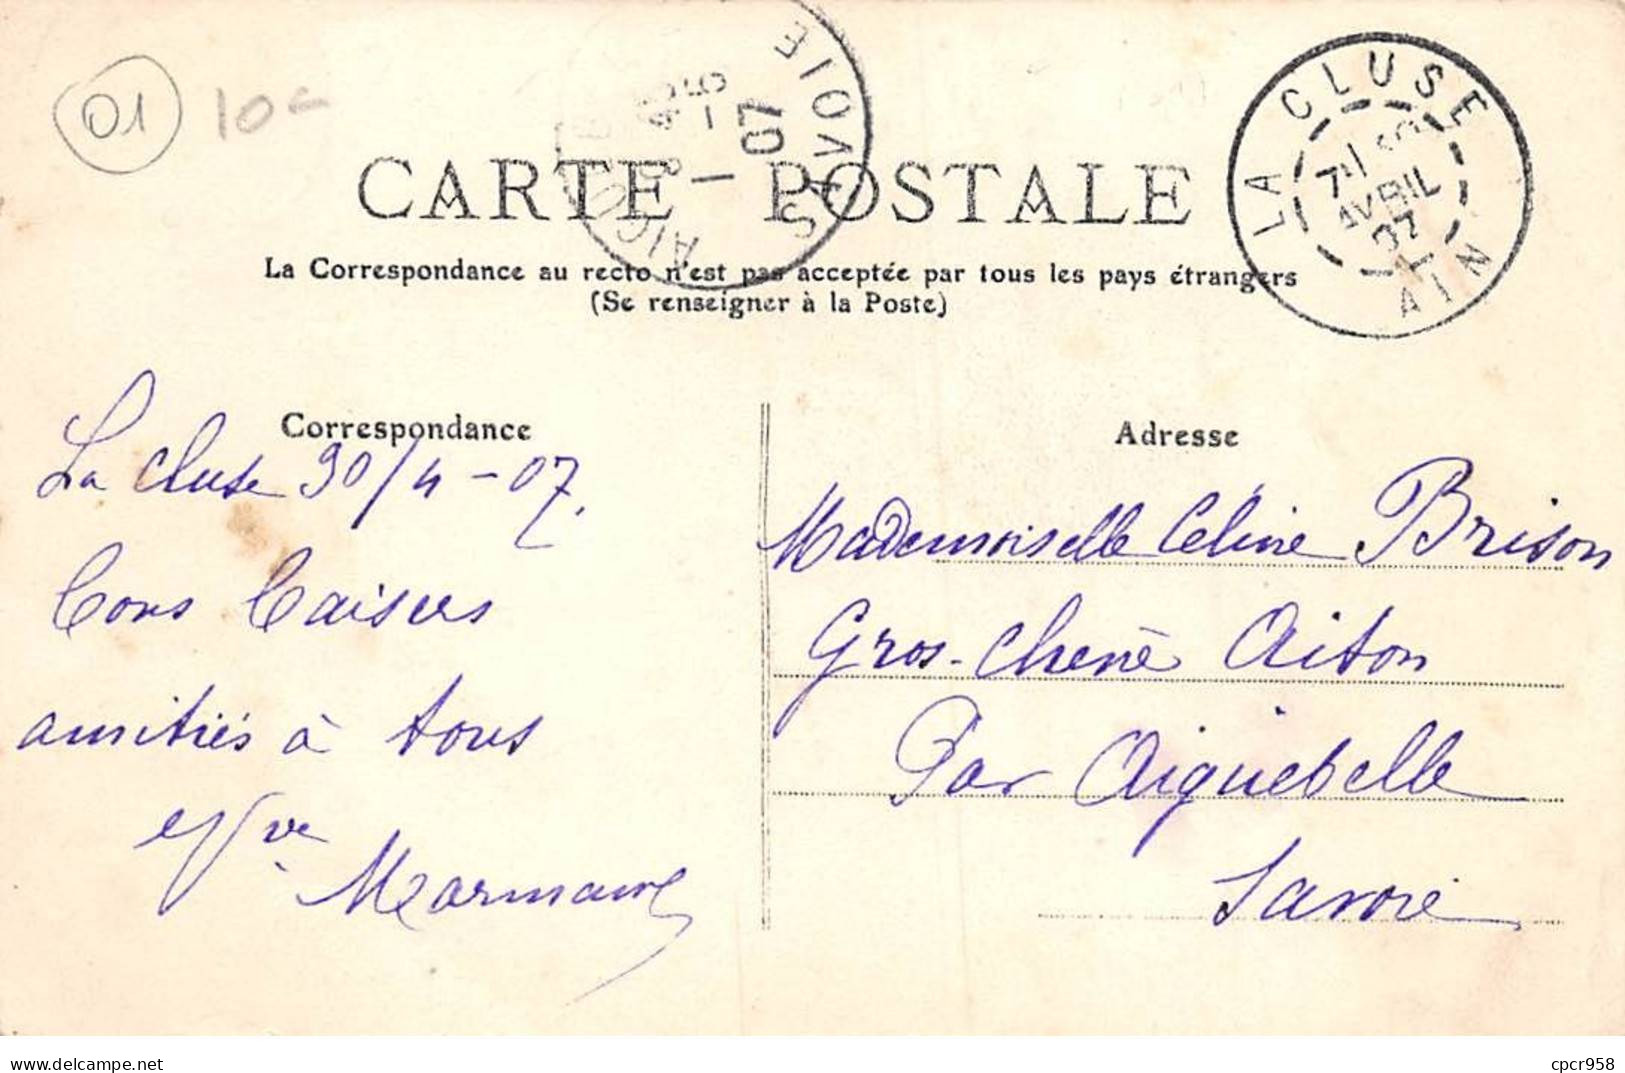 01
10
CARTE POSTALE
La Correspondance au recto n'est pas acceptée par tous les pays étrangers
(Se renseigner à la Poste)
SAVOIE
1 - 5
07
LA CLUSE
AVRIL
07
AIN
Correspondance
La Cluse 30/4 - 07.
Bons Baisers
amitiés à tous
Vve
Adresse
Mademoiselle Celine Brison
Gros-Chene Aiton
Par Aiguebelle
Savoie
01
cpcr958